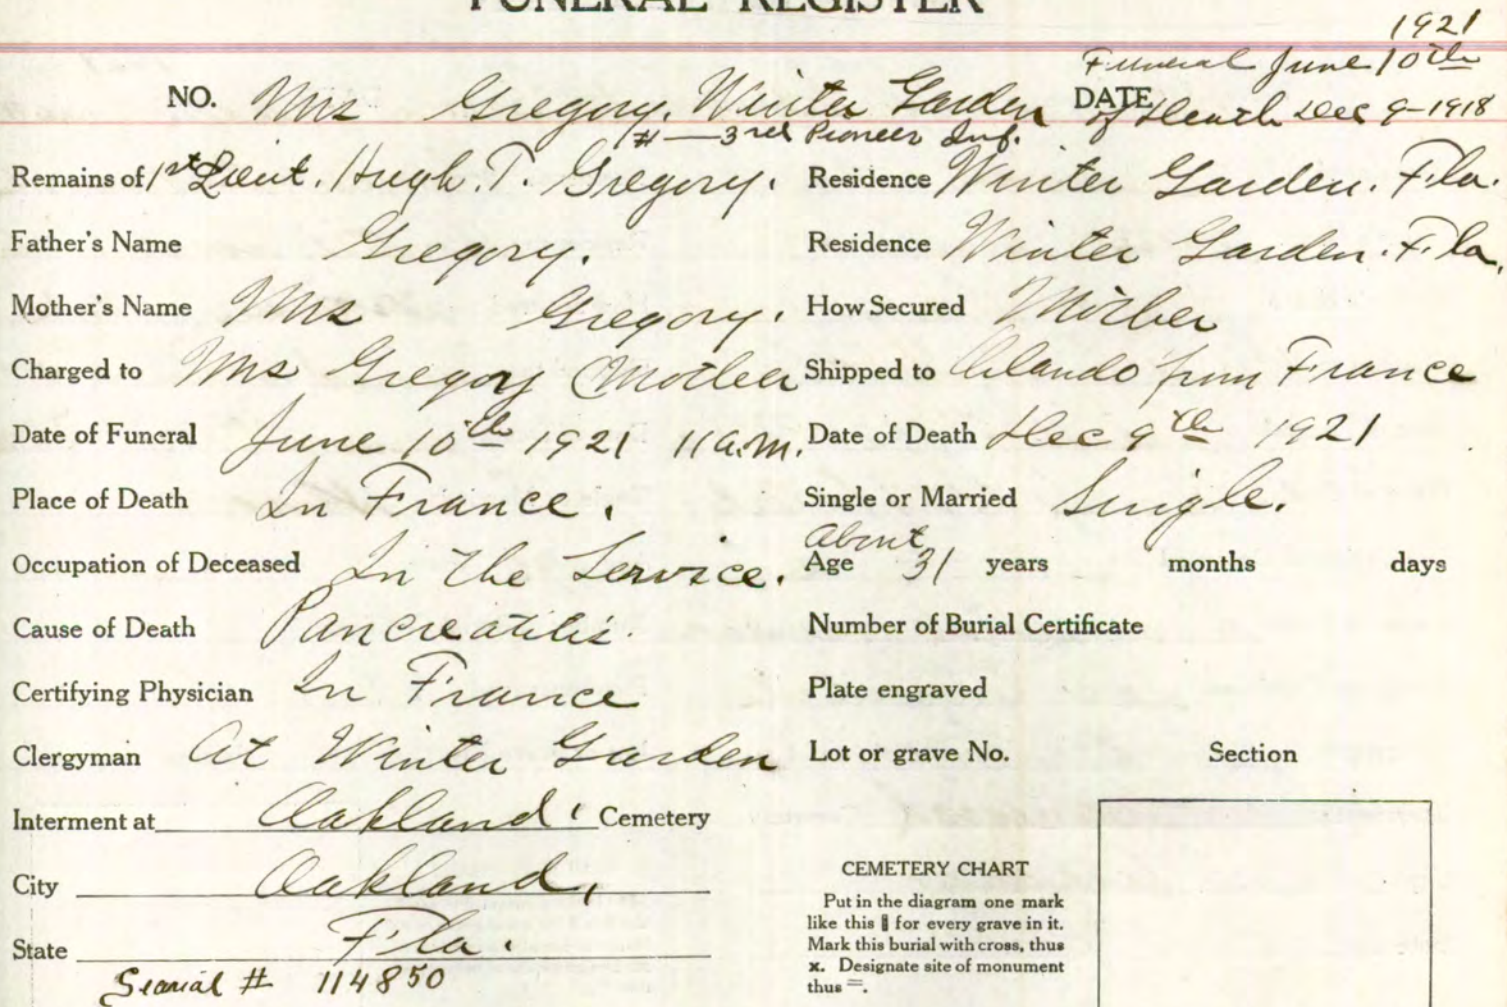 FUNERAL REGISTER
1921
Funeral June 10th
NO. Mrs Gregory. Winter Garden DATE of Death Dec 9-1918
# — 3rd Pioneer Inf.
Remains of 1st Lieut. Hugh. T. Gregory. Residence Winter Garden. Fla.
Father's Name Gregory. Residence Winter Garden. Fla.
Mother's Name Mrs Gregory. How Secured Mother
Charged to Mrs Gregory (Mother Shipped to Orlando from France
Date of Funeral June 10th 1921 11 a.m. Date of Death Dec 9th 1921
Place of Death In France. Single or Married Single.
About
Occupation of Deceased In the Service. Age 31 years months days
Cause of Death Pancreatitis. Number of Burial Certificate
Certifying Physician In France Plate engraved
Clergyman At Winter Garden Lot or grave No. Section
Interment at Oakland. Cemetery
CEMETERY CHART
City Oakland,
Put in the diagram one mark
like this ▮ for every grave in it.
Mark this burial with cross, thus
x. Designate site of monument
thus =.
State Fla.
Searial # 114850